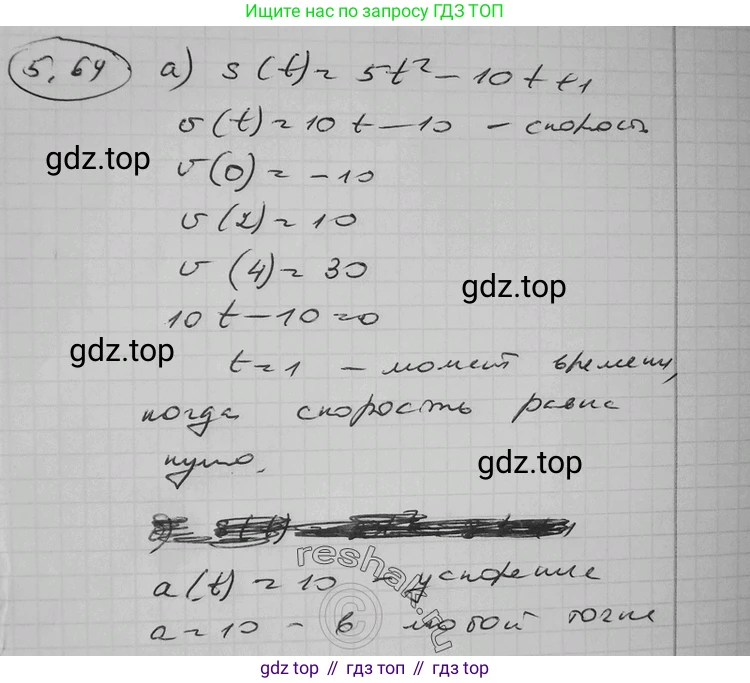 Ищите нас по запросу ГДЗ ТОП
5.64 а) s(t) = 5t² - 10t + 1
v(t) = 10t - 10 - скорость
gdz.top
v(0) = -10
v(2) = 10
v(4) = 30
gdz.top
10t - 10 = 0
gdz.top
t = 1 - момент времени,
когда скорость равна
нулю.
gdz.top
reshak.ru
©
a(t) = 10 - ускорение
a = 10 - в любой точке
gdz top // гдз топ // гдз.top